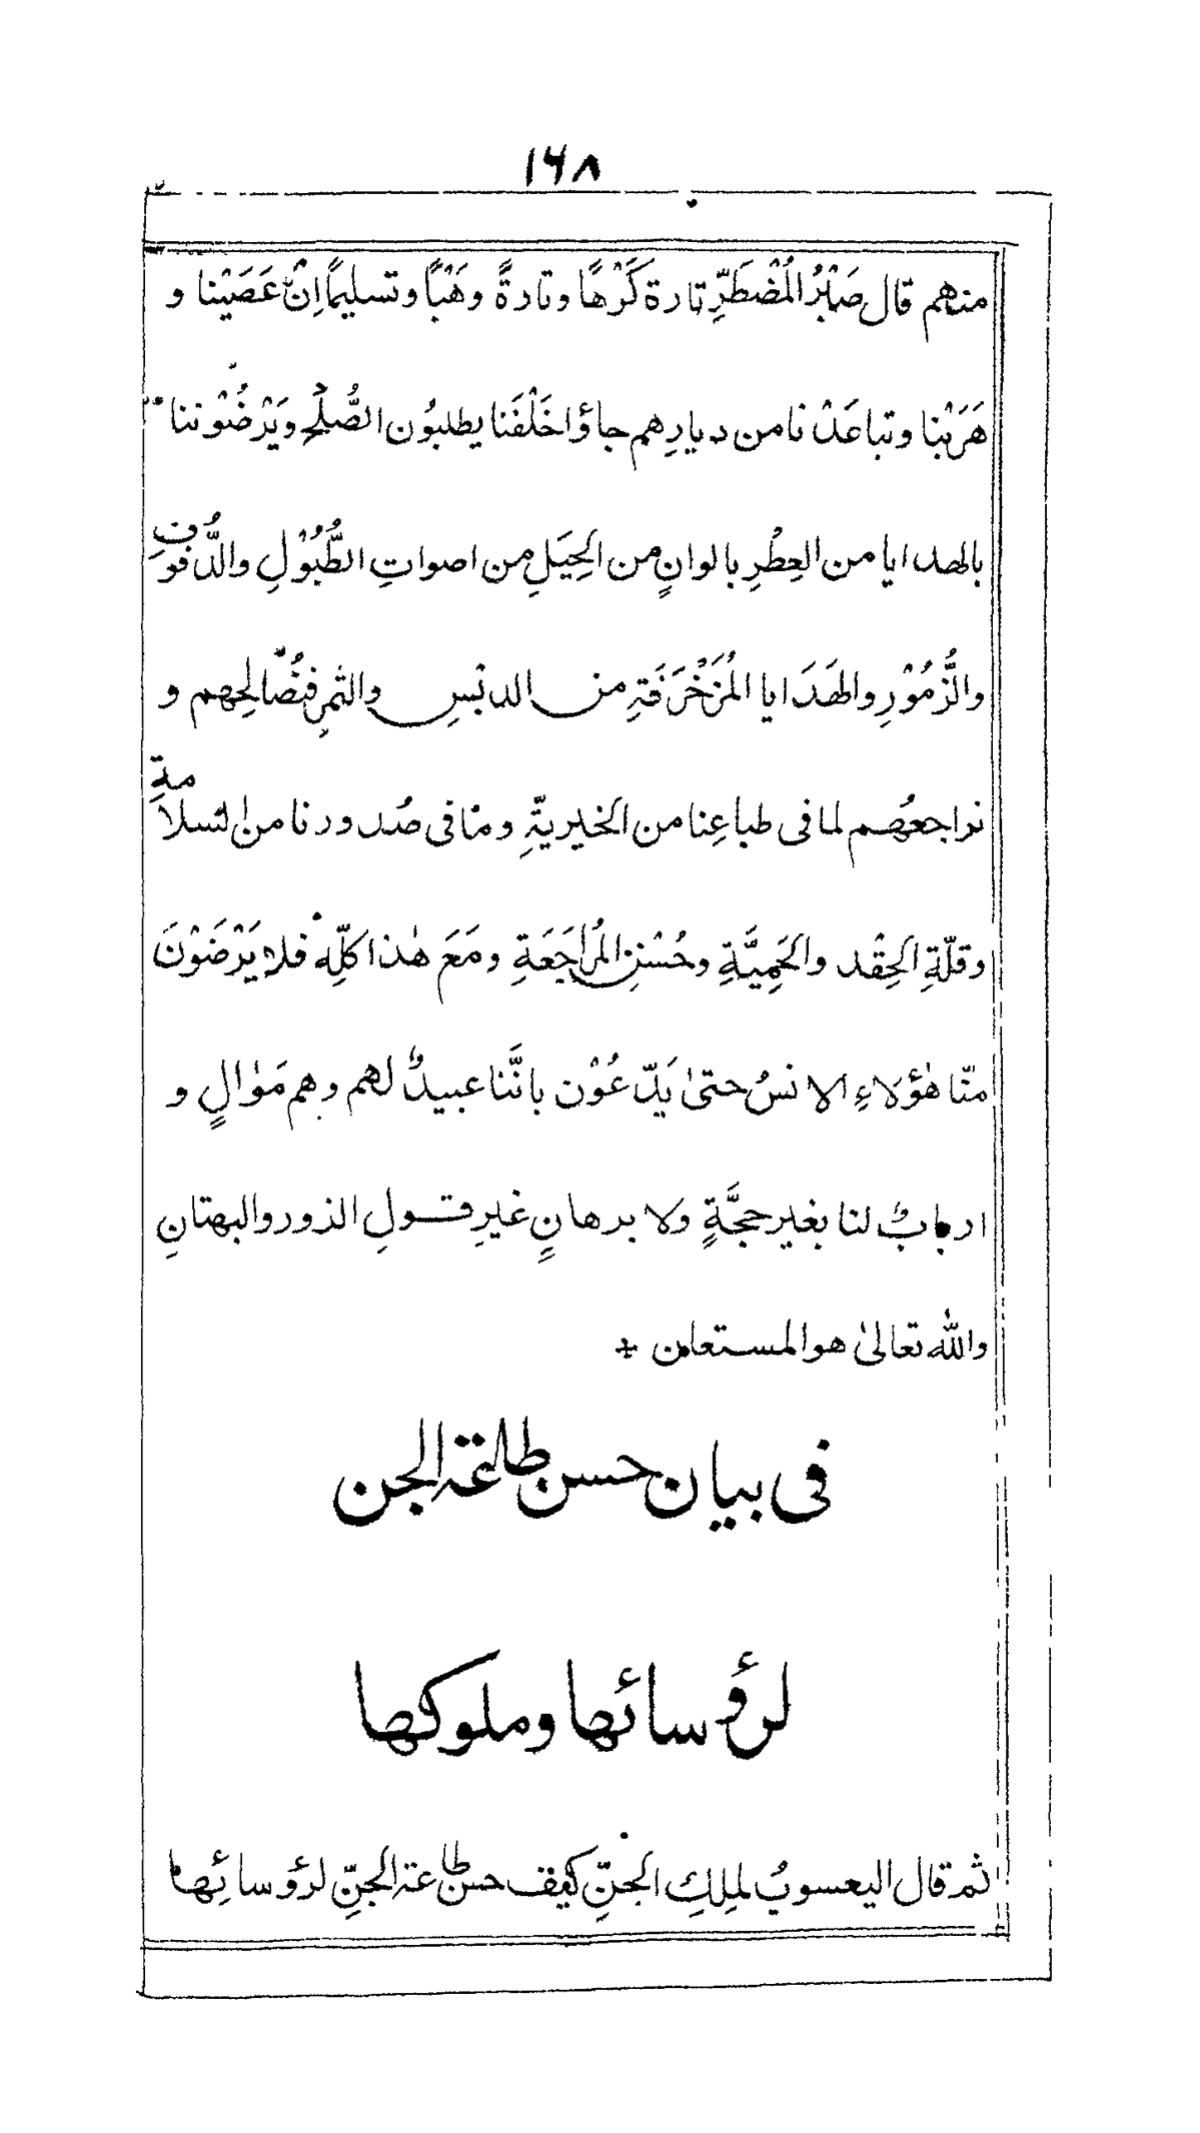 ١٦٨
منهم قال صَبْرُ المُضْطَرِّ تارة كَرْهًا وتارةً وَهْبًا وتسليمًا اِنْ عَصَيْنا و
هَرَبْنا وتباعَدْنا من ديارِهم جاؤا خَلْفَنا يطلبُون الصُّلْحَ ويَرْضُوْننا
بالهدايا من العِطْرِ بالوانٍ من الحِيَلِ من اصواتِ الطُّبُوْلِ والدُّفوفِ
والزُّمُوْرِ والهَدَايا المُزَخْرَفَةِ من الدبْسِ والتمرِ فنُصَالحِهم و
نراجعُهم لما فى طباعِنا من الخيريةِّ ومَا فى صُدورنا من السلامةِ
وقلّةِ الحِقْد والحَمِيَّةِ وحُسْنِ المُراجَعَةِ ومَعَ هٰذا كلِّهٖ فلا يَرْضَوْنَ
منّا هٰؤلاءِ الانسُ حتىٰ يَدّعُوْن بانَّنا عبيدٌ لهم وهم مَوٰالٍ و
اربابٌ لنا بغير حجَّةٍ ولا برهانٍ غيرِ قولِ الزور والبهتانِ
والله تعالىٰ هو المستعان +
فى بيان حسن طاعة الجن
لرؤسائها وملوكها
ثم قال اليعسوبُ لملِكِ الجنِّ كيف حسن طاعة الجنِّ لرؤسائِها